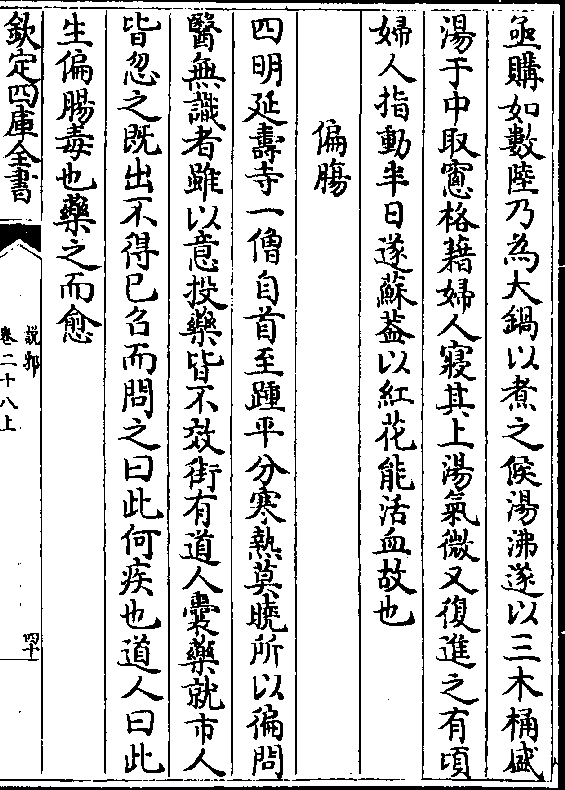 亟購如數陸乃為大鍋以煮之候湯沸遂以三木桶盛
湯于中取窻格藉婦人寢其上湯氣微又復進之有頃
婦人指動半日遂蘇葢以紅花能活血故也
偏腸
四明延壽寺一僧自首至踵平分寒熱莫曉所以徧問
醫無識者雖以意投藥皆不效街有道人囊藥就市人
皆忽之既出不得已召而問之曰此何疾也道人曰此
生偏腸毒也藥之而愈
欽定四庫全書
說郛
卷二十八上
四十